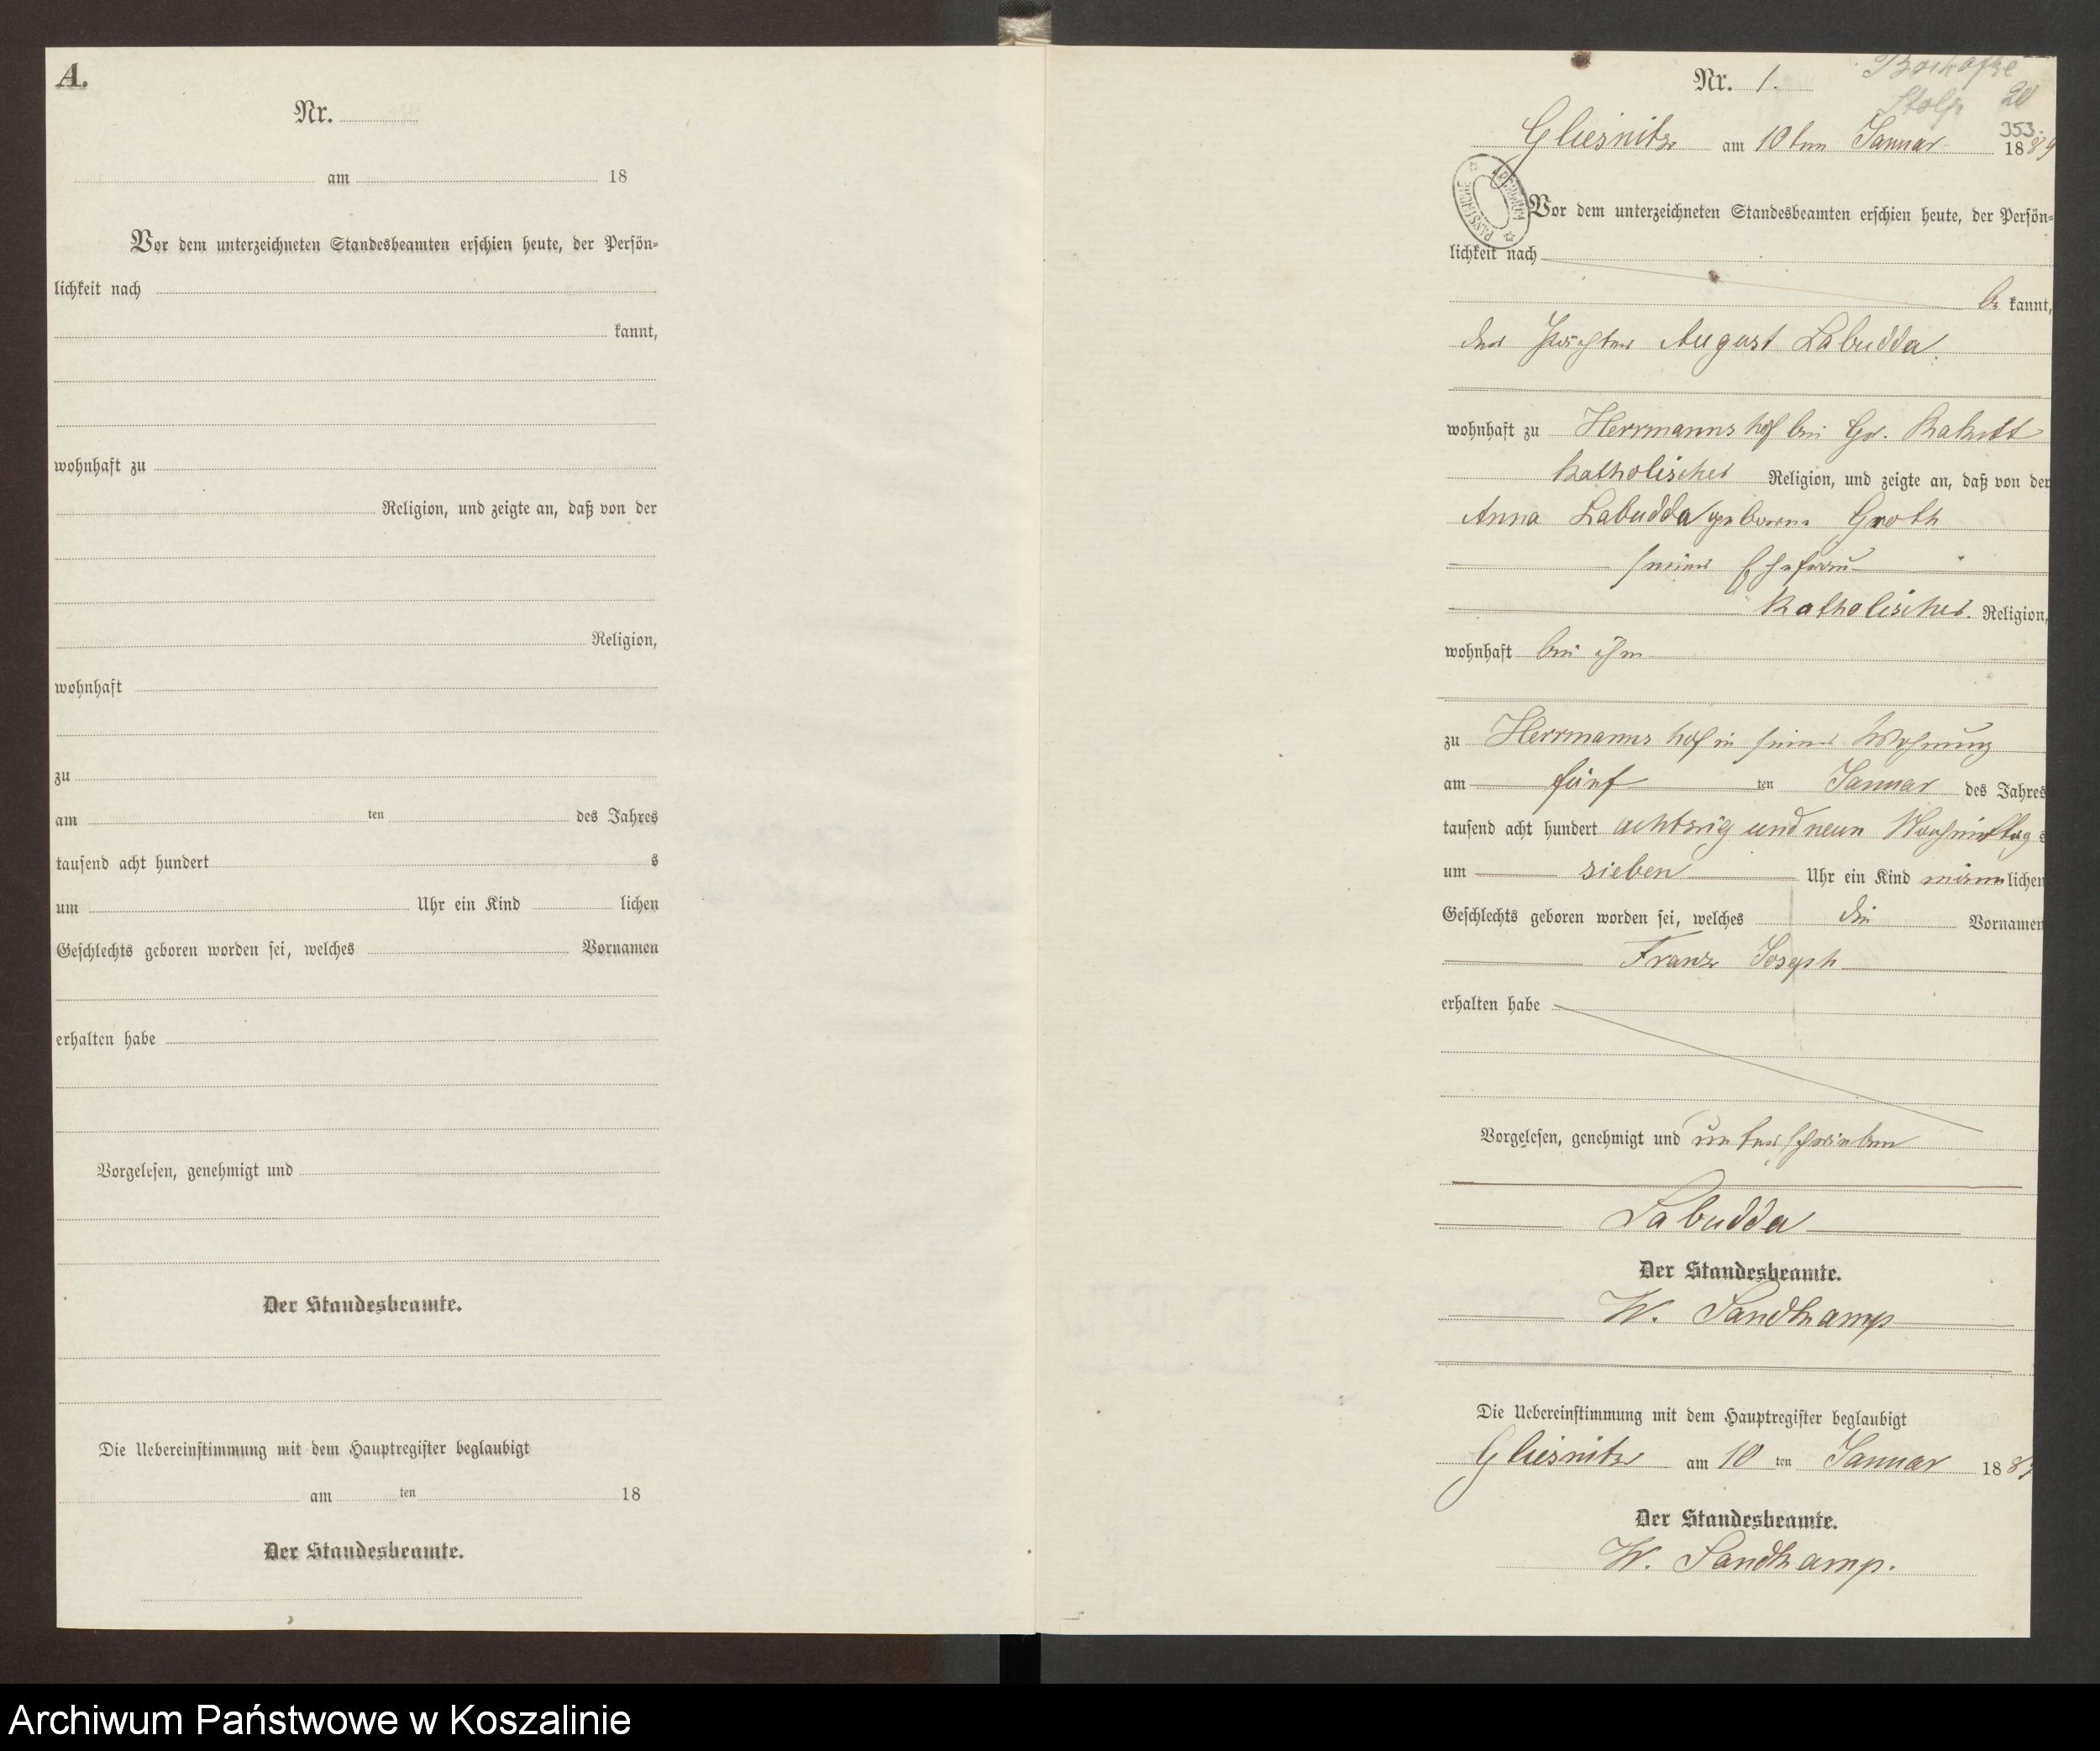 A.
Nr.
am 18
Vor dem unterzeichneten Standesbeamten erschien heute, der Persön=
lichkeit nach
kannt,
wohnhaft zu
Religion, und zeigte an, daß von der
Religion,
wohnhaft
zu
am ten des Jahres
tausend acht hundert s
um Uhr ein Kind lichen
Geschlechts geboren worden sei, welches Vornamen
erhalten habe
Vorgelesen, genehmigt und
Der Standesbeamte.
Die Uebereinstimmung mit dem Hauptregister beglaubigt
am ten 18
Der Standesbeamte.
Nr. 1.
Stolp 20
353.
Gliesnitz am 10ten Januar 1889
ARCHIWUM PAŃSTWOWE
Vor dem unterzeichneten Standesbeamten erschien heute, der Persön=
lichkeit nach
be kannt,
der Pächter August Labudda
wohnhaft zu Herrmannshof bei Gr.
katholischer Religion, und zeigte an, daß von der
Anna Labudda geborene Groth
seiner Ehefrau
katholischer. Religion,
wohnhaft bei ihm
zu Herrmannshof in seiner Wohnung
am fünf ten Januar des Jahres
tausend acht hundert achtzig und neun Nachmittag s
um sieben Uhr ein Kind männlichen
Geschlechts geboren worden sei, welches die Vornamen
Franz Joseph
erhalten habe
Vorgelesen, genehmigt und unterschrieben
Labudda
Der Standesbeamte.
W. Sandkamp
Die Uebereinstimmung mit dem Hauptregister beglaubigt
Gliesnitz am 10 ten Januar 1889
Der Standesbeamte.
W. Sandkamp.
Archiwum Państwowe w Koszalinie